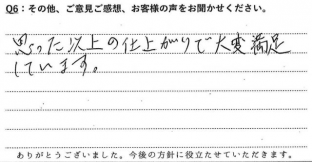 Q6：その他、ご意見ご感想、お客様の声をお聞かせください。
思った以上の仕上がりで大変満足
しています。
ありがとうございました。今後の方針に役立たせていただきます。